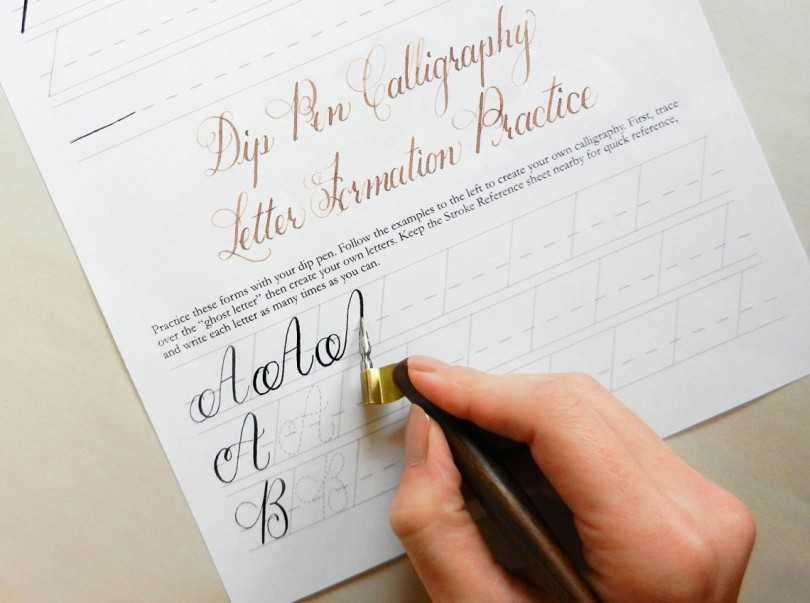 Dip Pen Calligraphy
Letter Formation Practice
Practice these forms with your dip pen. Follow the examples to the left to create your own calligraphy. First, trace
over the "ghost letter" then create your own letters. Keep the Stroke Reference sheet nearby for quick reference,
and write each letter as many times as you can.
A A A
A A
B B